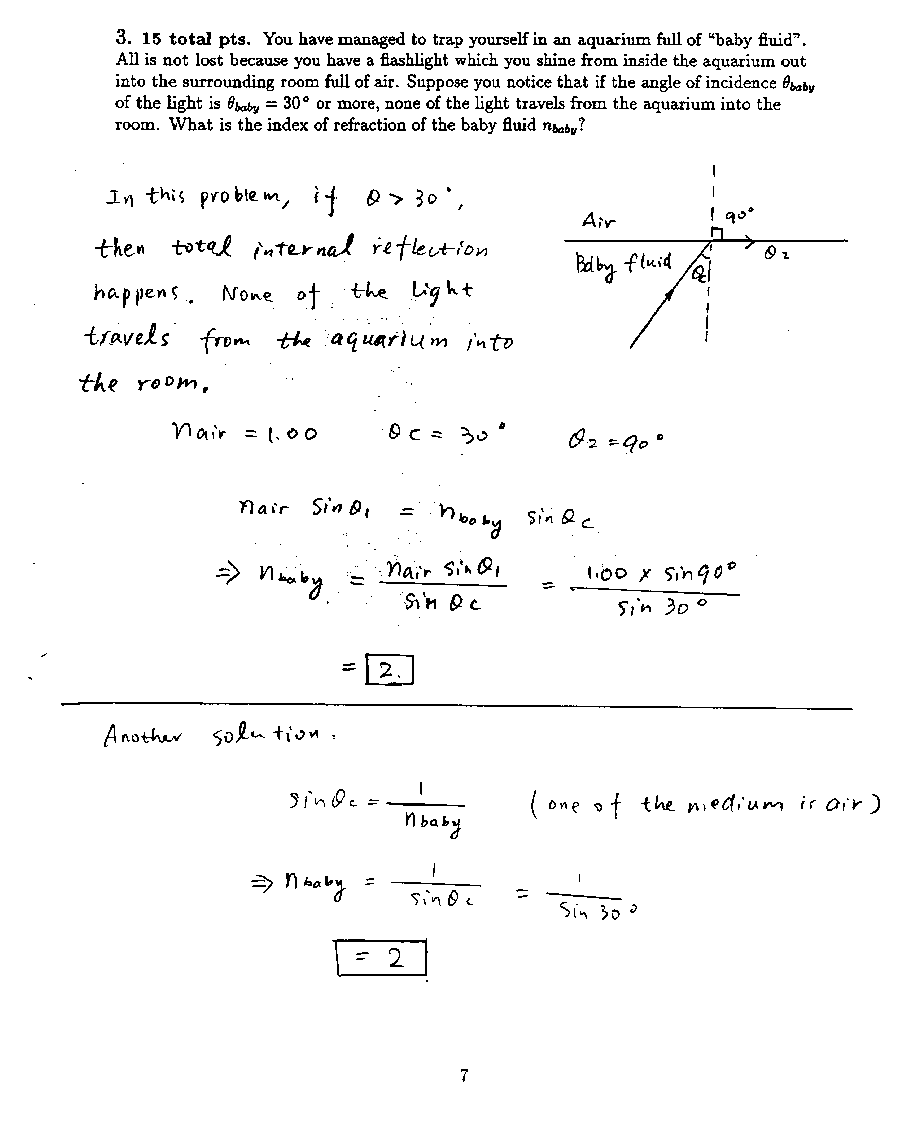 3. 15 total pts. You have managed to trap yourself in an aquarium full of “baby fluid”.
All is not lost because you have a flashlight which you shine from inside the aquarium out
into the surrounding room full of air. Suppose you notice that if the angle of incidence θbaby
of the light is θbaby = 30° or more, none of the light travels from the aquarium into the
room. What is the index of refraction of the baby fluid nbaby?
In this problem, if θ > 30°,
then total internal reflection
happens. None of the light
travels from the aquarium into
the room.
Air
90°
θ2
Baby fluid
θ1
nair = 1.00 θc = 30° θ2 = 90°
nair sinθ1 = nbaby sinθc
⇒ nbaby = nair sinθ1 / sin θc = 1.00 × sin90° / sin 30°
= 2.
Another solution.
sinθc = 1 / nbaby (one of the medium is air)
⇒ nbaby = 1 / sinθc = 1 / sin 30°
= 2
7